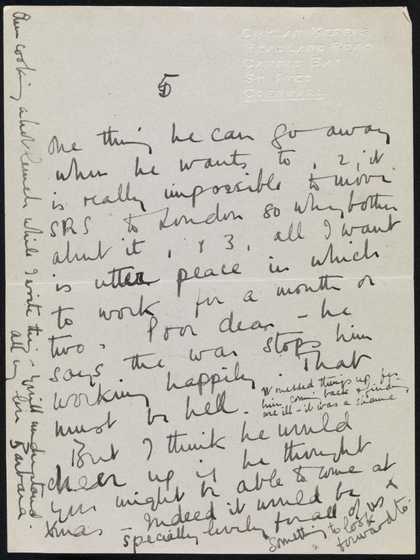 CHYLAN KERRIS
HEADLAND ROAD
CARBIS BAY
ST IVES
CORNWALL
5
one thing he can go away
when he wants to, 2, it
is really impossible to move
SRS to London so why bother
about it, & 3, all I want
is utter peace in which
to work for a month or
two. Poor dear – he
says the war stops him
working happily. That
must be hell. It messed things up for
him coming back & finding
me ill – it was a shame
But I think he would
cheer up if he thought
you might be able to come at
Xmas – Indeed it would be
specially lovely for all of us &
something to look
forward to.
cooking a hot lunch while I wrote this – you'll understand.
all my love Barbara.